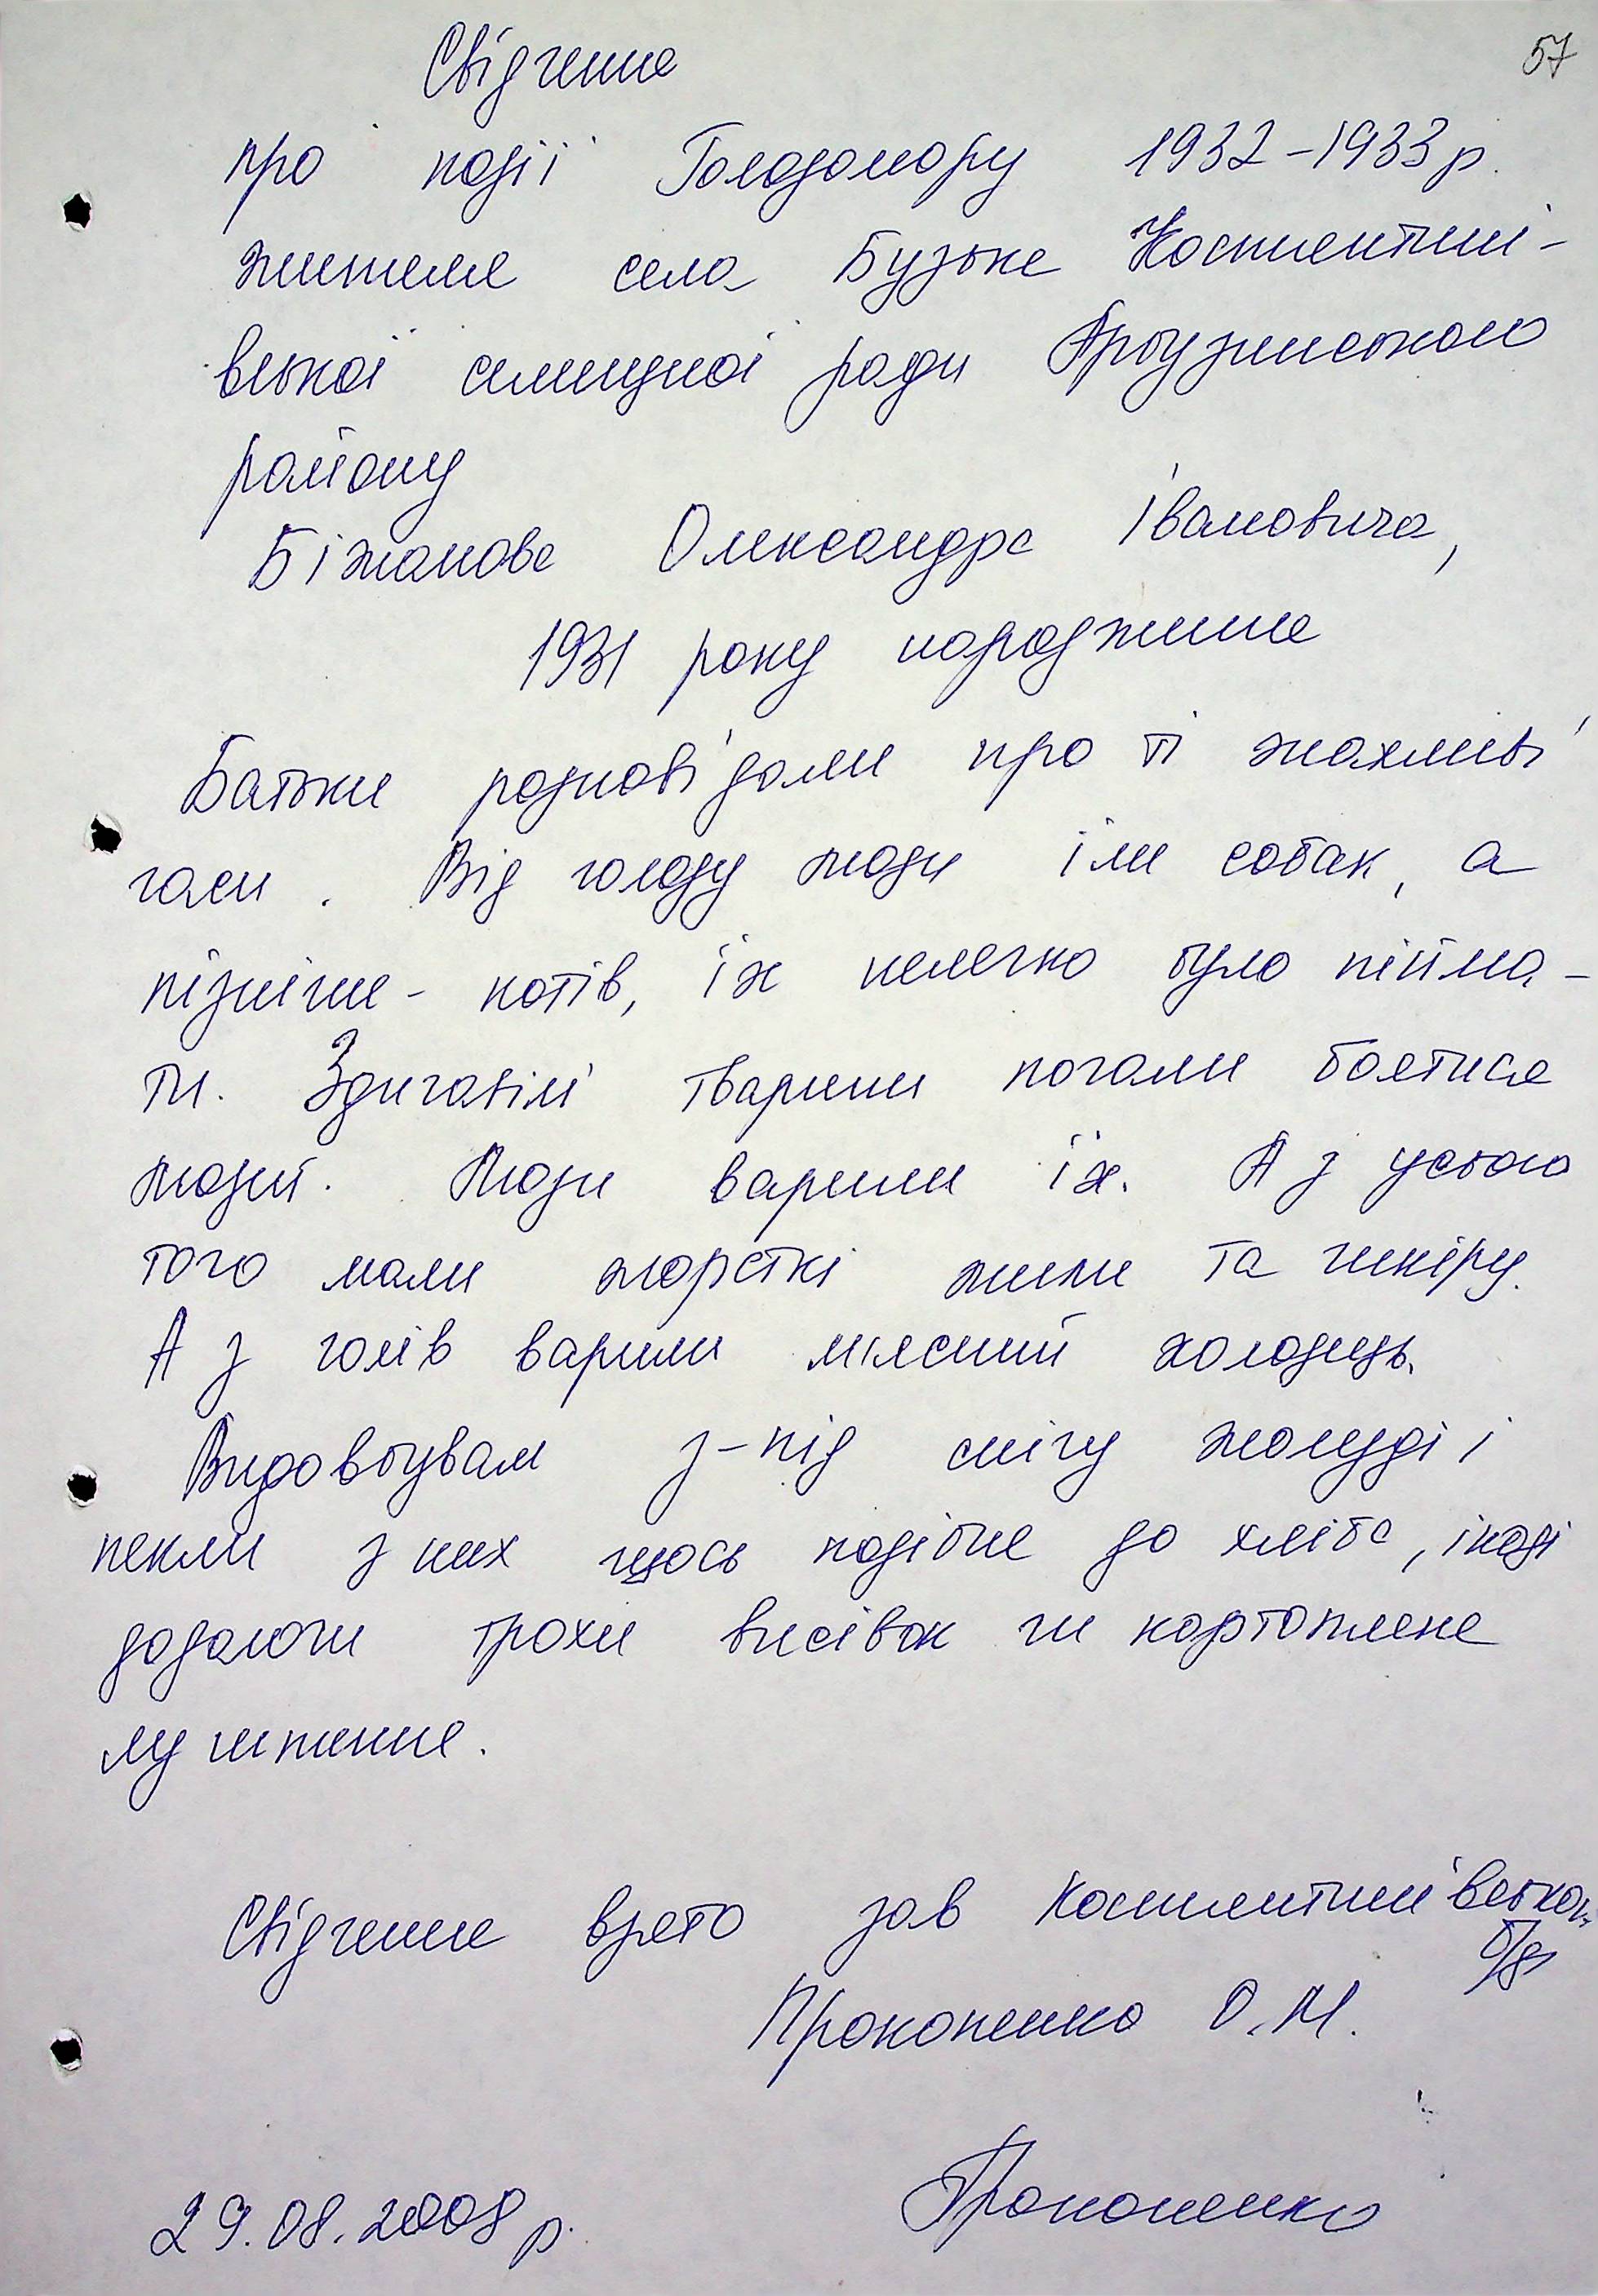 57
Свідчення
про події Голодомору 1932-1933 р.
жителя села Бузьке Костянтині-
вської селищної ради Арбузинського
району
Біжанова Олександра Івановича,
1931 року народження
Батьки розповідали про ті жахливі
часи. Від голоду люди їли собак, а
пізніше - котів, їх нелегко було пійма-
ти. Здичавілі тварини почали боятися
людей. Люди варили їх. А з усього
того мали жорсткі жили та шкіру.
А з голів варили мясний холодець.
Видовбували з-під снігу жолуді і
пекли з них щось подібне до хліба, іноді
додаючи трохи висівок чи картопляне
лушпиння.
Свідчення взято зав Костянтинівською
б/ф
Прокопенко О.М.
29.08.2008 р.
Прокопенко